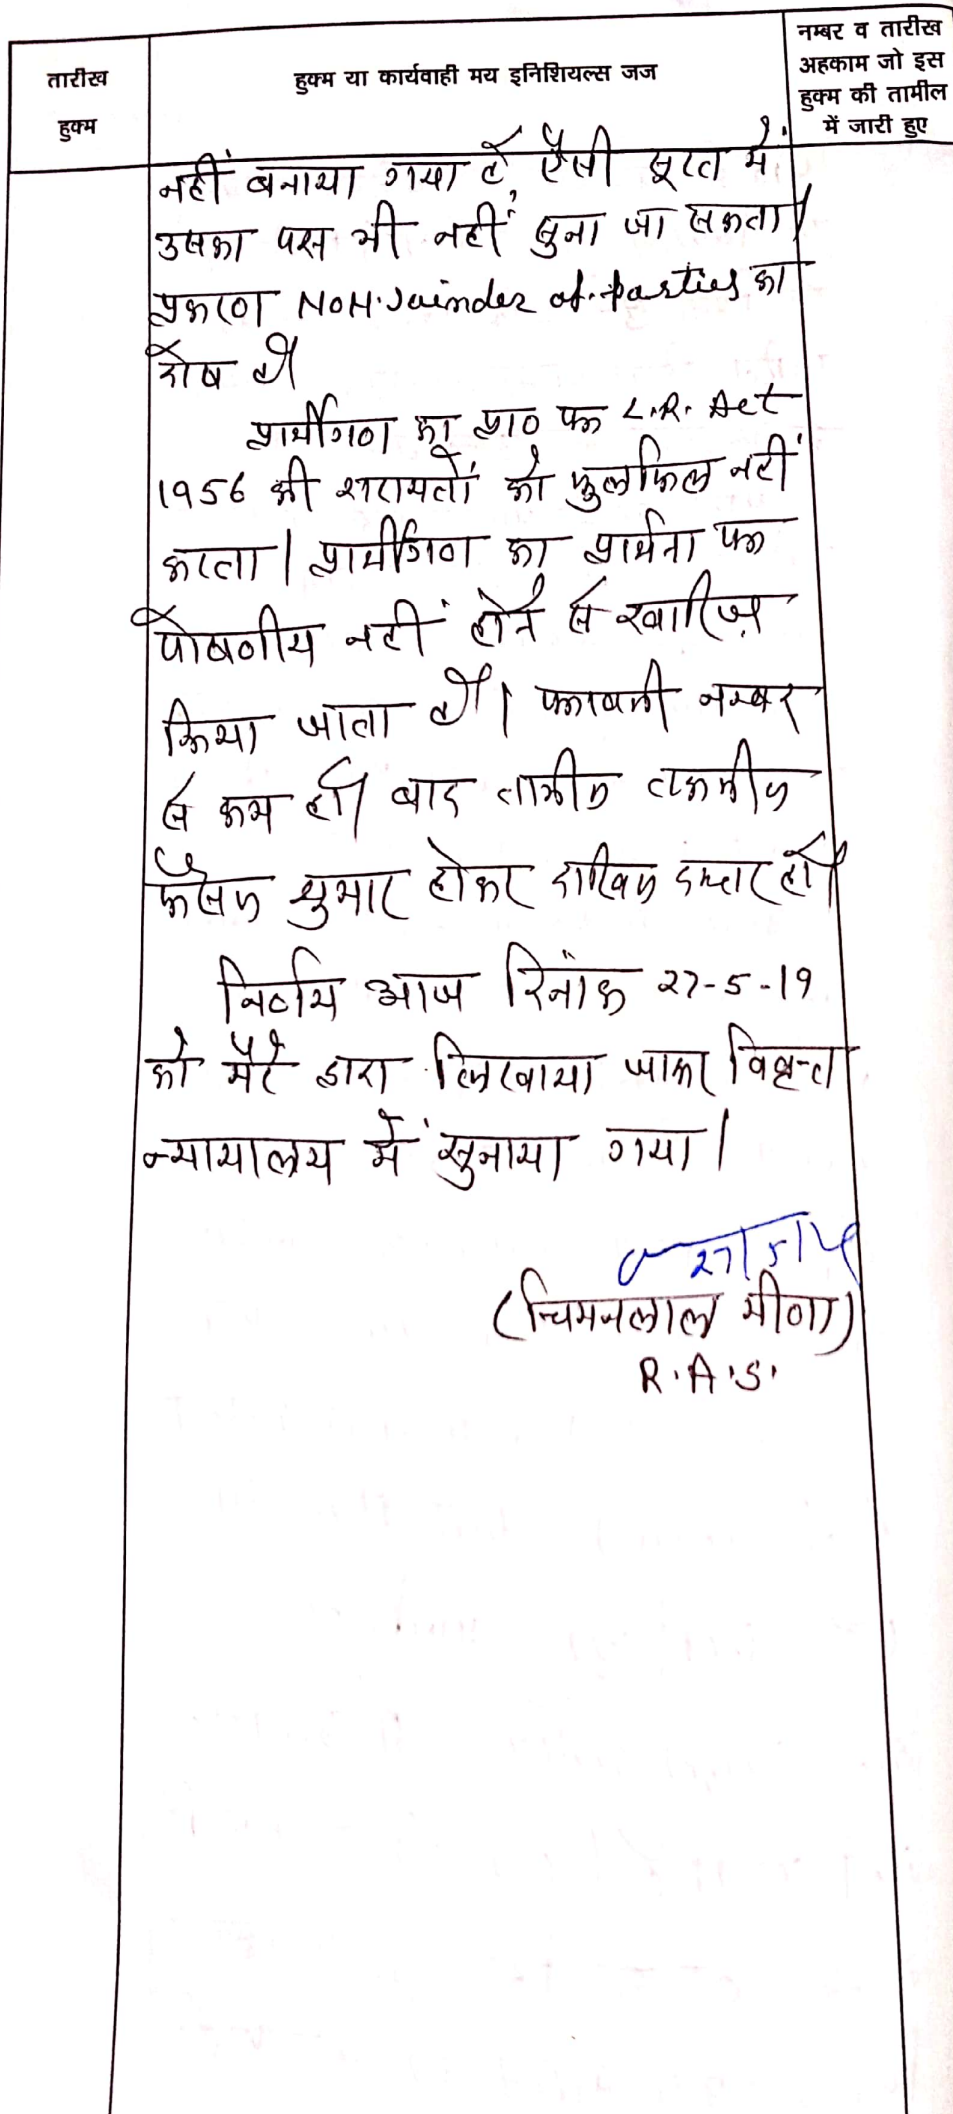 तारीख
हुक्म
हुक्म या कार्यवाही मय इनिशियल्स जज
नम्बर व तारीख
अहकाम जो इस
हुक्म की तामील
में जारी हुए
नहीं बनाया गया है, ऐसी सूरत में
उसका पक्ष भी नहीं सुना जा सकता।
प्रकरण Non.Joinder of.parties का
दोष है।
प्रार्थीगण का प्रा० पत्र L.R. Act
1956 की शरायतों को फुलफिल नहीं
करता। प्रार्थीगण का प्रार्थना पत्र
पोषणीय नहीं होने से खारिज़
किया जाता है। पत्रावली नम्बर
से कम हो। बाद तामील तकमील
फैसल शुमार होकर दाखिल दफ्तर हो।
निर्णय आज दिनांक 27-5-19
को मेरे द्वारा लिखवाया जाकर विवृत
न्यायालय में सुनाया गया।
(चिमनलाल मीणा)
R.A.S.